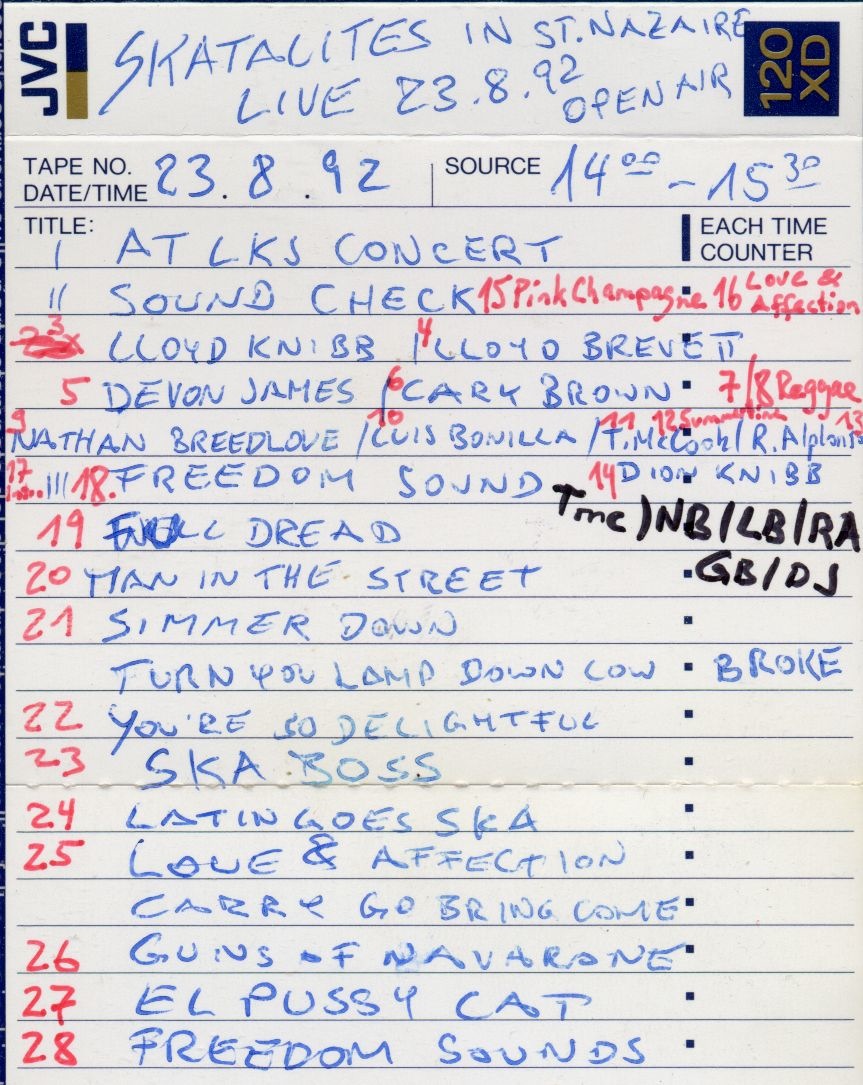 JVC SKATALITES IN ST. NAZAIRE 120 XD
LIVE 23.8.92 OPEN AIR
TAPE NO. DATE/TIME 23.8.92 SOURCE 14⁰⁰ - 15³⁰
TITLE: EACH TIME COUNTER
I AT LKS CONCERT
II SOUND CHECK 15 Pink Champagne 16 Love & Affection
3 LLOYD KNIBB / 4 LLOYD BREVETT
5 DEVON JAMES / 6 CARY BROWN 7/8 Reggae
9 NATHAN BREEDLOVE / 10 LUIS BONILLA / 11 T. McCook / 12 Summertime R. Alphonso 13
17 Intro. III 18. FREEDOM SOUND 14 DION KNIBB
19 FULL DREAD Tmc) NB/LB/RA
20 MAN IN THE STREET GB/DJ
21 SIMMER DOWN
TURN YOU LAMP DOWN LOW BROKE
22 YOU'RE SO DELIGHTFUL
23 SKA BOSS
24 LATIN GOES SKA
25 LOVE & AFFECTION
CARRY GO BRING COME
26 GUNS OF NAVARONE
27 EL PUSSY CAT
28 FREEDOM SOUNDS